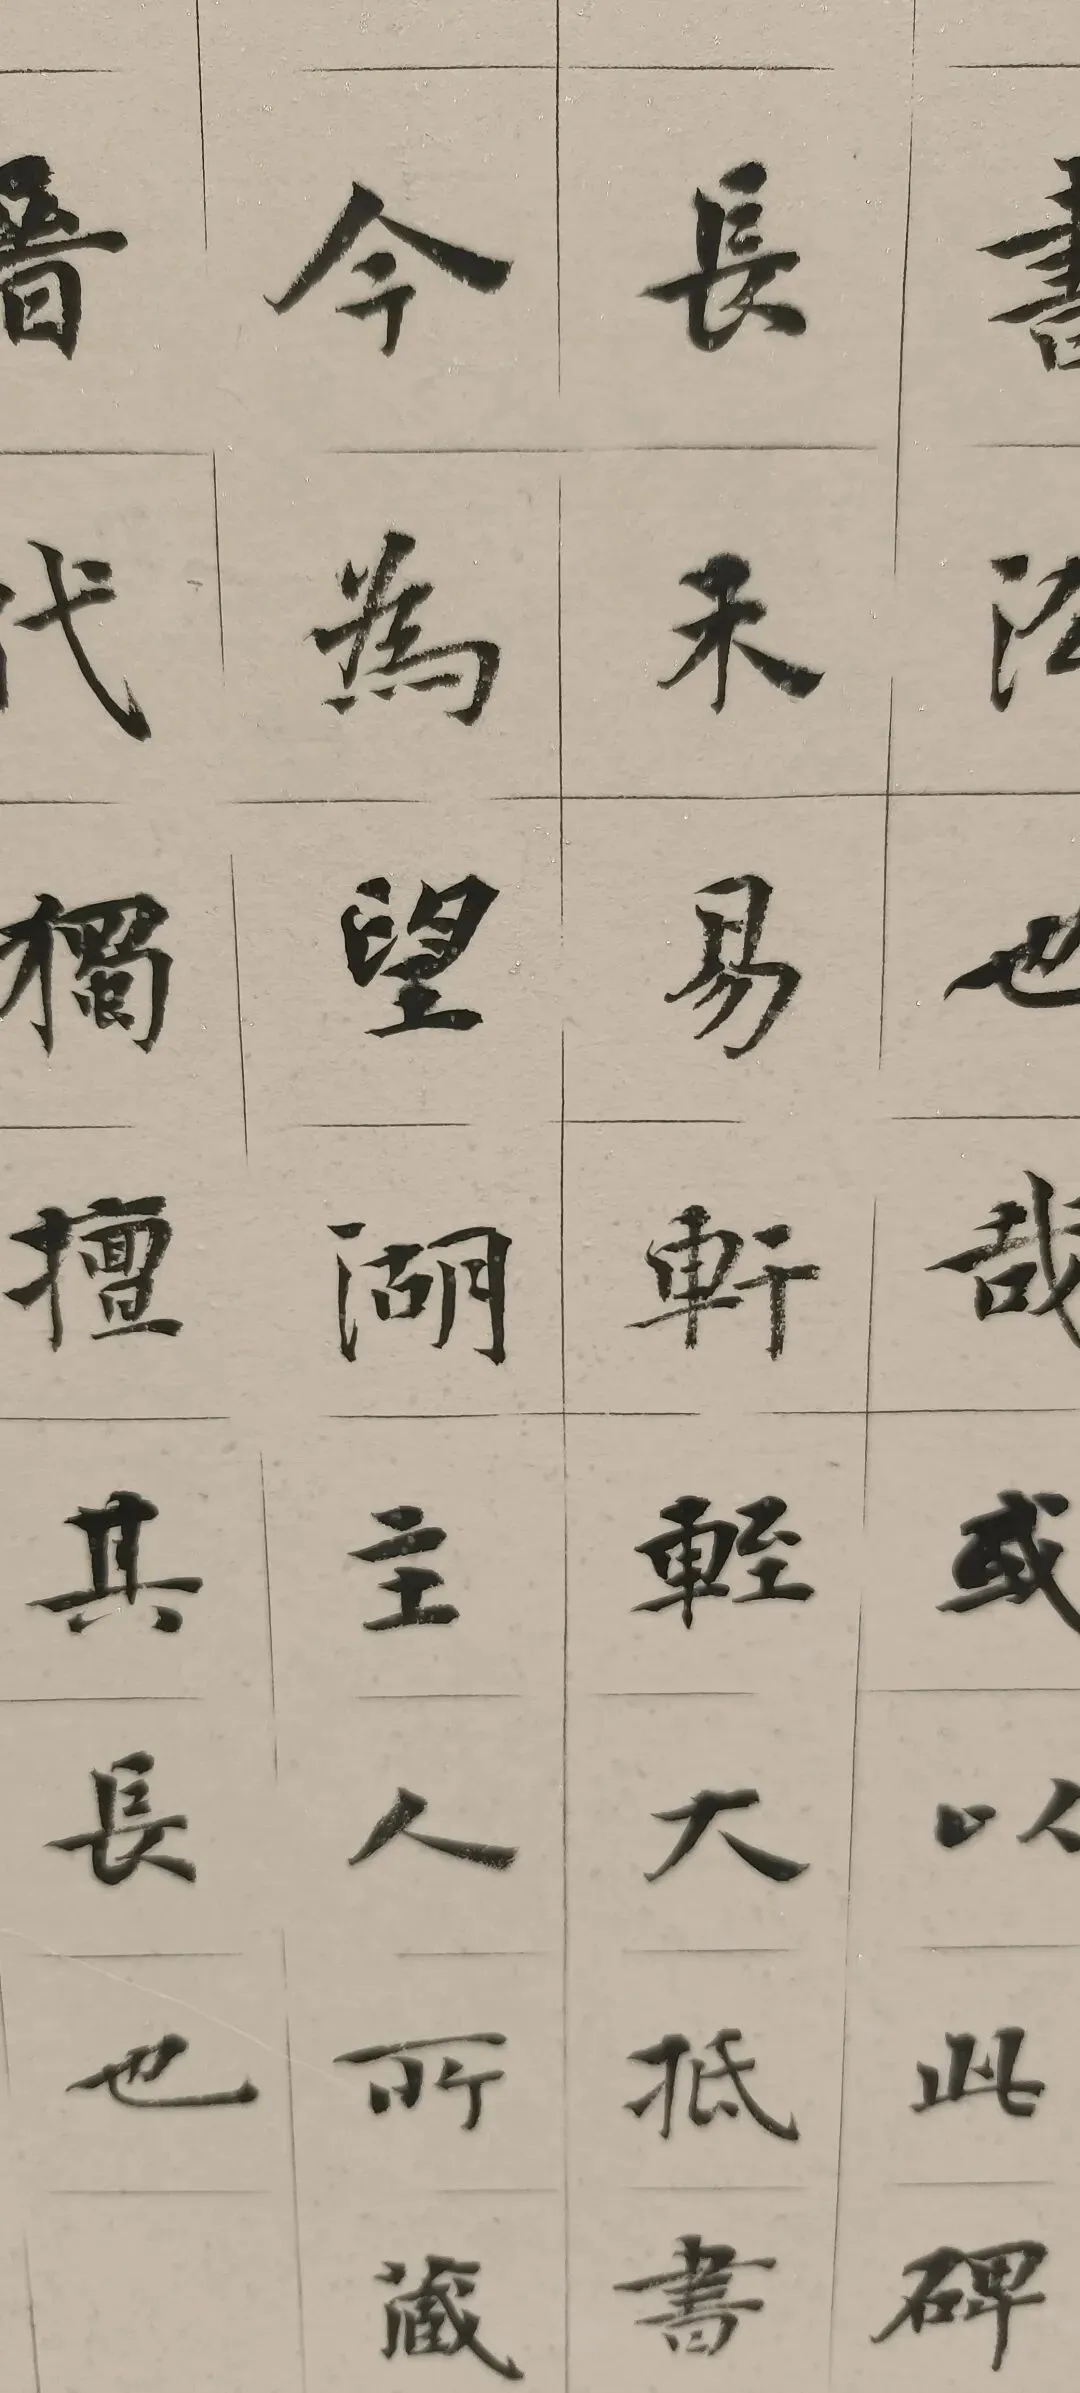 書法也哉或以此碑
長未易軒輊大抵書
今為望湖主人所藏
晉代獨擅其長也